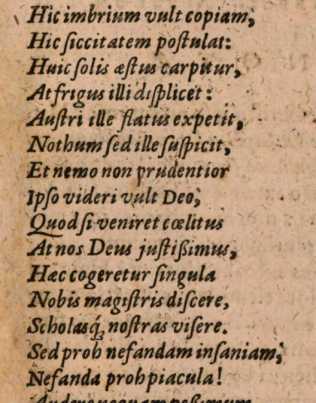 Hic imbrium vult copiam;
Hic ſiccitatem poſtulat:
Huic ſolis æſtus carpitur,
At frigus illi diſplicet:
Auſtri ille flatus expetit,
Nothum ſed ille ſuſpicit,
Et nemo non prudentior
Ipſo videri vult Deo;
Quod ſi veniret cœlitus
At nos Deus juſtißimus,
Hæc cogeretur ſingula
Nobis magiſtris diſcere,
Scholasq́; noſtras viſere.
Sed proh nefandam inſaniam;
Nefanda proh piacula!